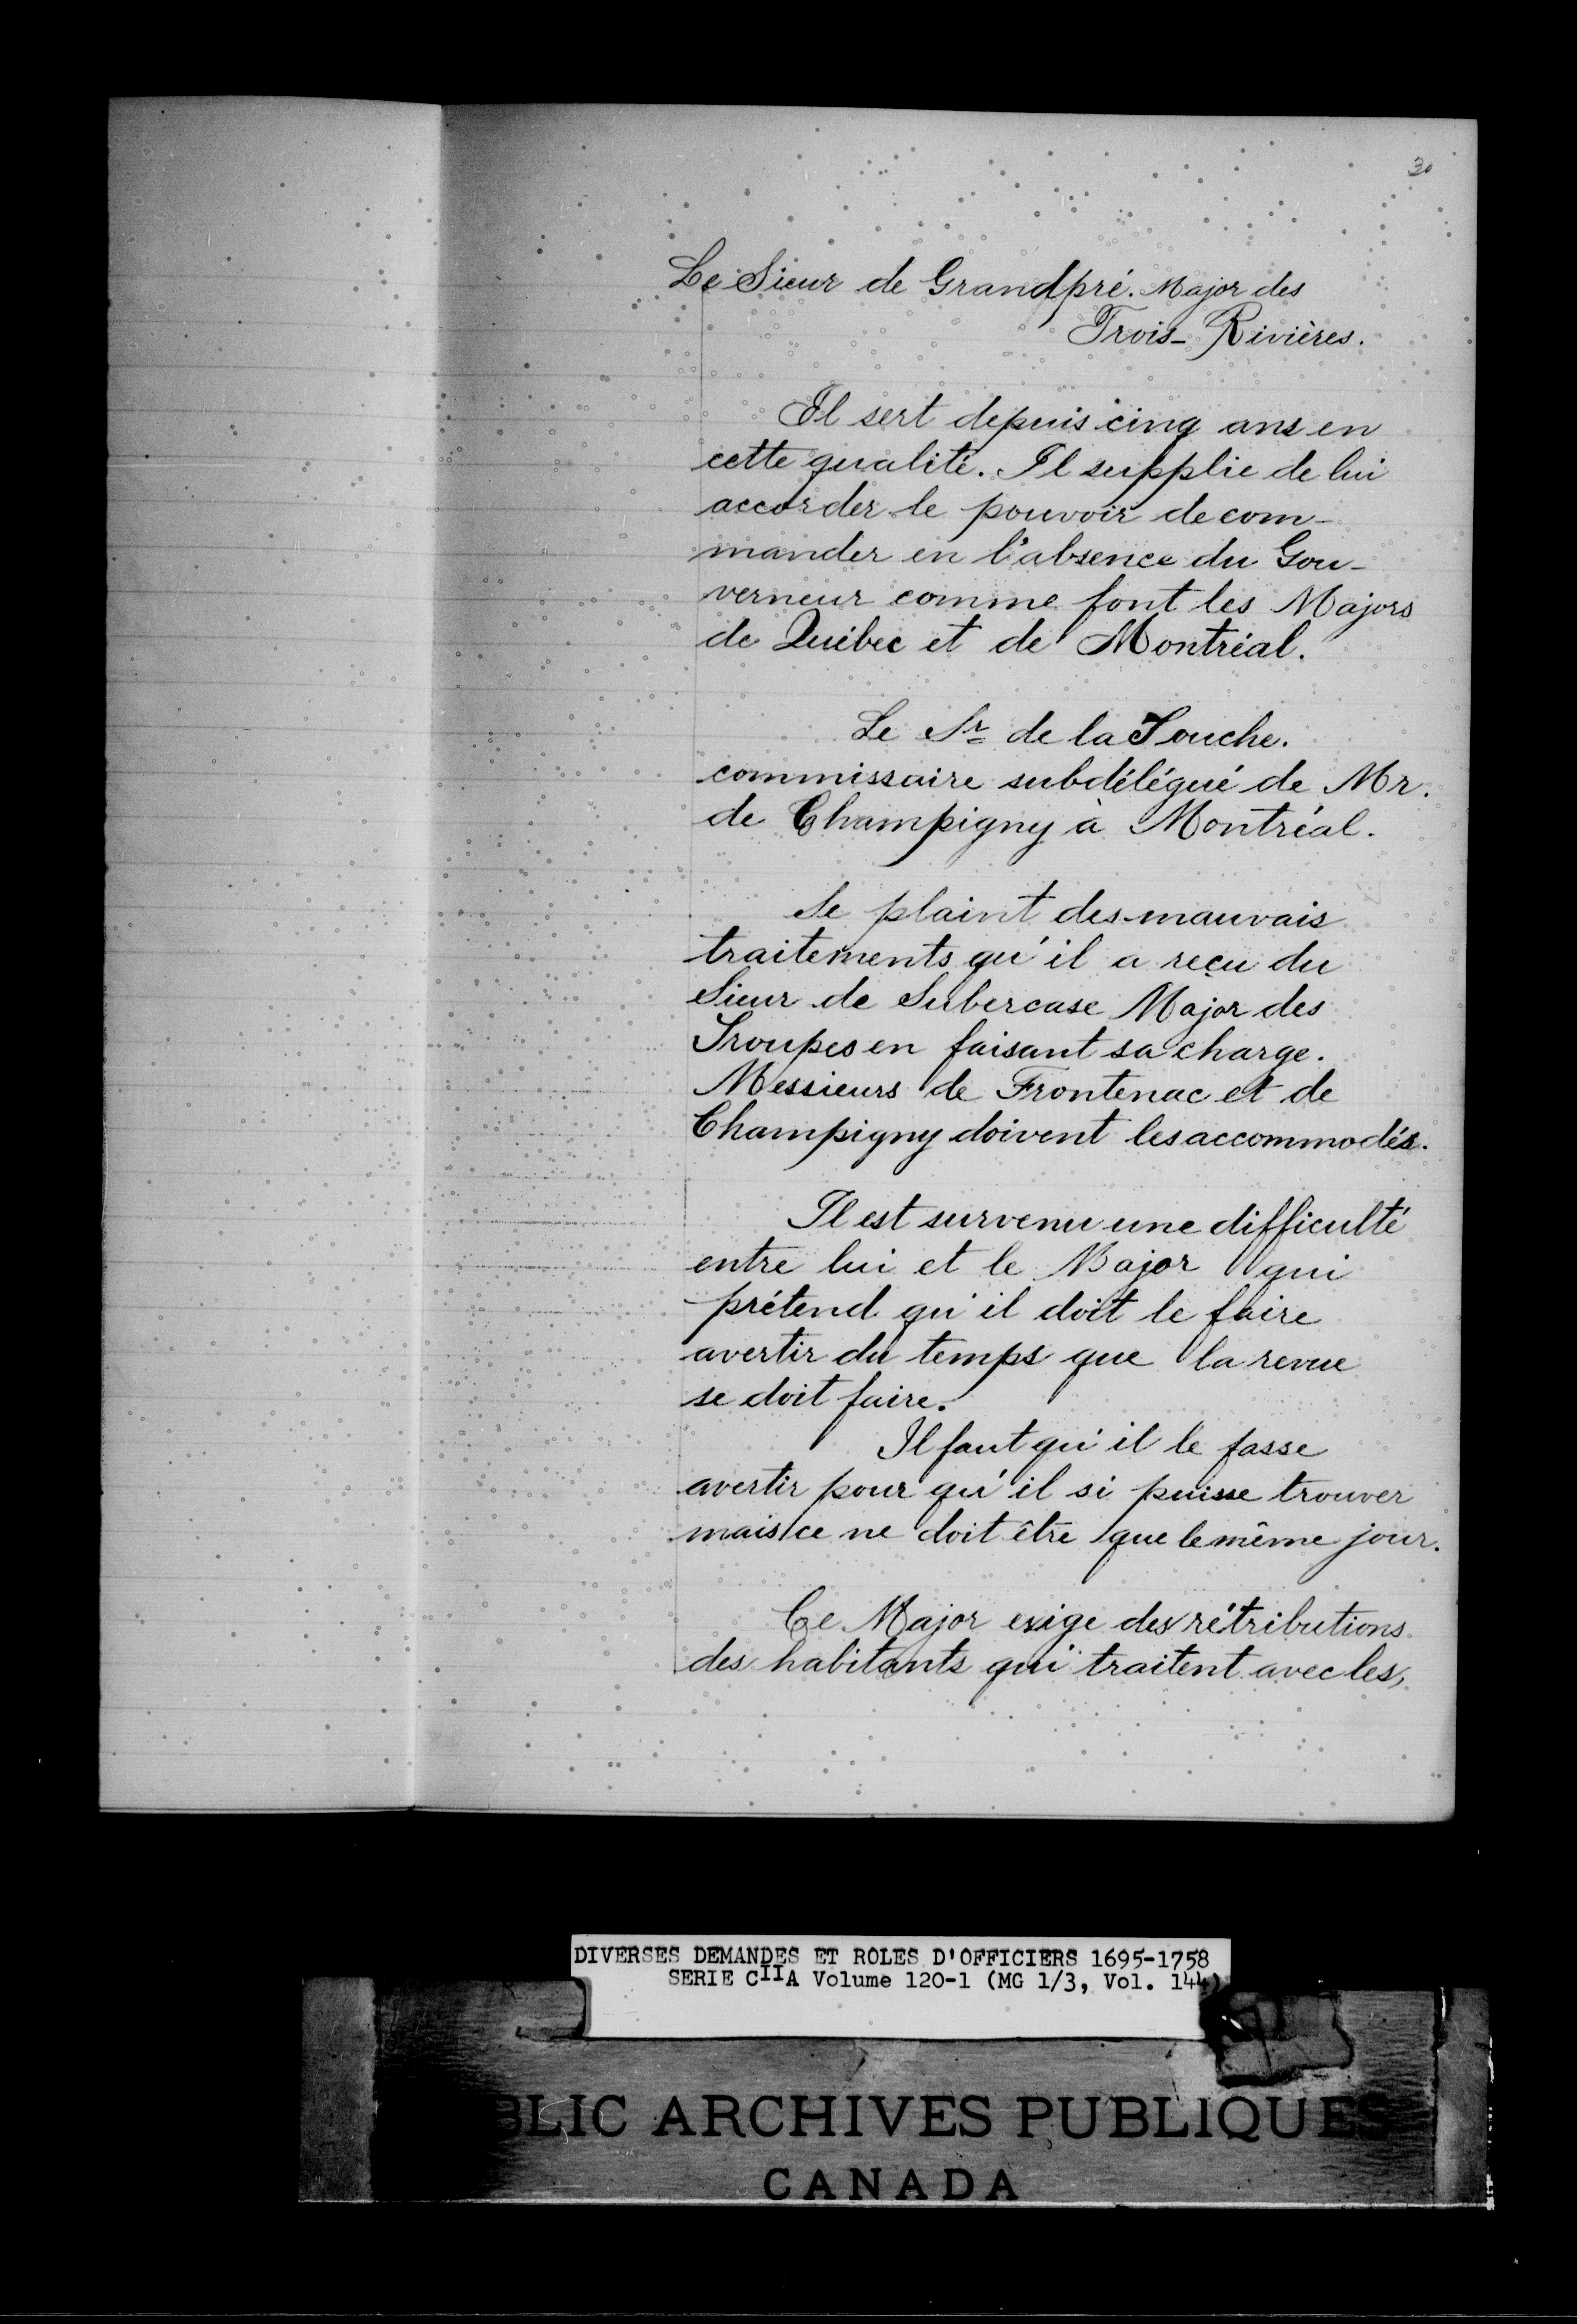 30
Le Sieur de Grandpré. Major des
Trois-Rivières.
Il sert depuis cinq ans en
cette qualité. Il supplie de lui
accorder le pouvoir de com-
mander en l'absence du Gou-
verneur comme font les Majors
de Québec et de Montréal.
Le Sr de la Touche.
commissaire subdélégué de Mr.
de Champigny à Montréal.
Se plaint des mauvais
traitements qu'il a reçu du
Sieur de Subercase Major des
Troupes en faisant sa charge.
Messieurs de Frontenac et de
Champigny doivent les accommodés.
Il est survenu une difficulté
entre lui et le Major qui
prétend qu'il doit le faire
avertir du temps que la revue
se doit faire.
Il faut qu'il le fasse
avertir pour qu'il si puisse trouver
mais ce ne doit être que le même jour.
Ce Major exige des rétributions
des habitants qui traitent avec les,
DIVERSES DEMANDES ET ROLES D'OFFICIERS 1695-1758
SERIE CIIA Volume 120-1 (MG 1/3, Vol. 144)
BLIC ARCHIVES PUBLIQUES
CANADA